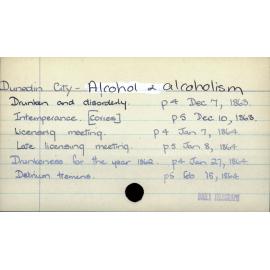 Dunedin City - Alcohol & alcoholism
Drunken and disorderly. p 4 Dec 7, 1863.
Intemperance. [Cones] p 5 Dec 10, 1863.
Licensing meeting. p 4 Jan 7, 1864.
Late licensing meeting. p 5 Jan 8, 1864
Drunkeness for the year 1862. p 4 Jan 27, 1864
Delirium tremens. p 5 Feb 15, 1864
DAILY TELEGRAPH